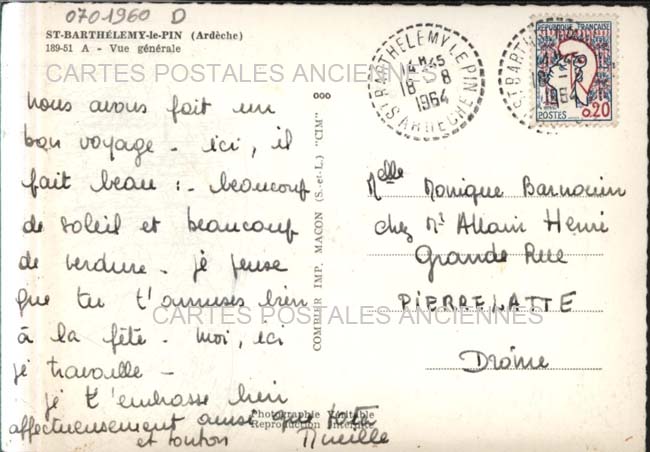 070 1960 D
ST-BARTHÉLEMY-le-PIN (Ardèche)
189-51 A - Vue générale
CARTES POSTALES ANCIENNES
nous avons fait un
bon voyage - ici, il
fait beau :- beaucoup
de soleil et beaucoup
de verdure - je pense
que tu t'amuses bien
à la fête - moi, ici
je travaille -
je t'embrasse bien
affectueusement ainsi que
et tonton
COMBIER IMP. MACON (S.-et-L.) "CIM"
Photographie Véritable
Reproduction Interdite
ST BARTHELEMY LE PIN
ARDECHE
18-8
1964
REPUBLIQUE FRANCAISE
POSTES
0,20
Melle Monique Barnouin
chez Mr Allain Henri
Grande Rue
PIERRELATTE
Drôme
CARTES POSTALES ANCIENNES